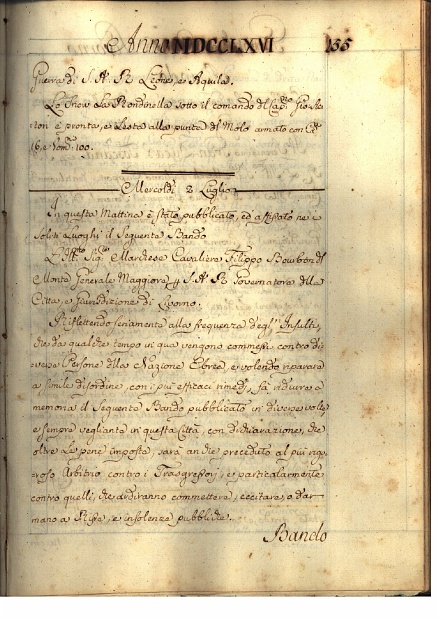 Anno MDCCLXVI 155
Guerra di S. A. R. Leone, e Aquila.
La Snow La Rondinella sotto il comando del Cap.
è pronta, e lesta alla punta del Molo armato con
16. e Uom: 100.
Mercoldì 2 Luglio
In questa Mattina è stato pubblicato, ed affissato ne
soliti Luoghi il seguente Bando
Sig. Marchese Cavaliere Filippo Bourbon del
Monte Generale Maggiore S. A. R. Governatore della
Citta, e Giurisdizione di Livorno.
Riflettendo seriamente alla frequenza degl' Insulti,
che da qualche tempo in qua vengono commessi contro di
verse Persone della Nazione Ebrea, e volendo riparare
a simile disordine, con i più efficaci rimedj, fà ridurre a
memoria il seguente Bando pubblicato in diverse volte
e sempre vegliante in questa Città, con dichiarazione, che
oltre le pene imposte, sarà anche proceduto al più rigo
roso Arbitrio contro i Trasgressori, e particolarmente
contro quelli, che ardiranno commettere, eccitare, o dar
mano a Risse, e insolenze pubbliche.
Bando